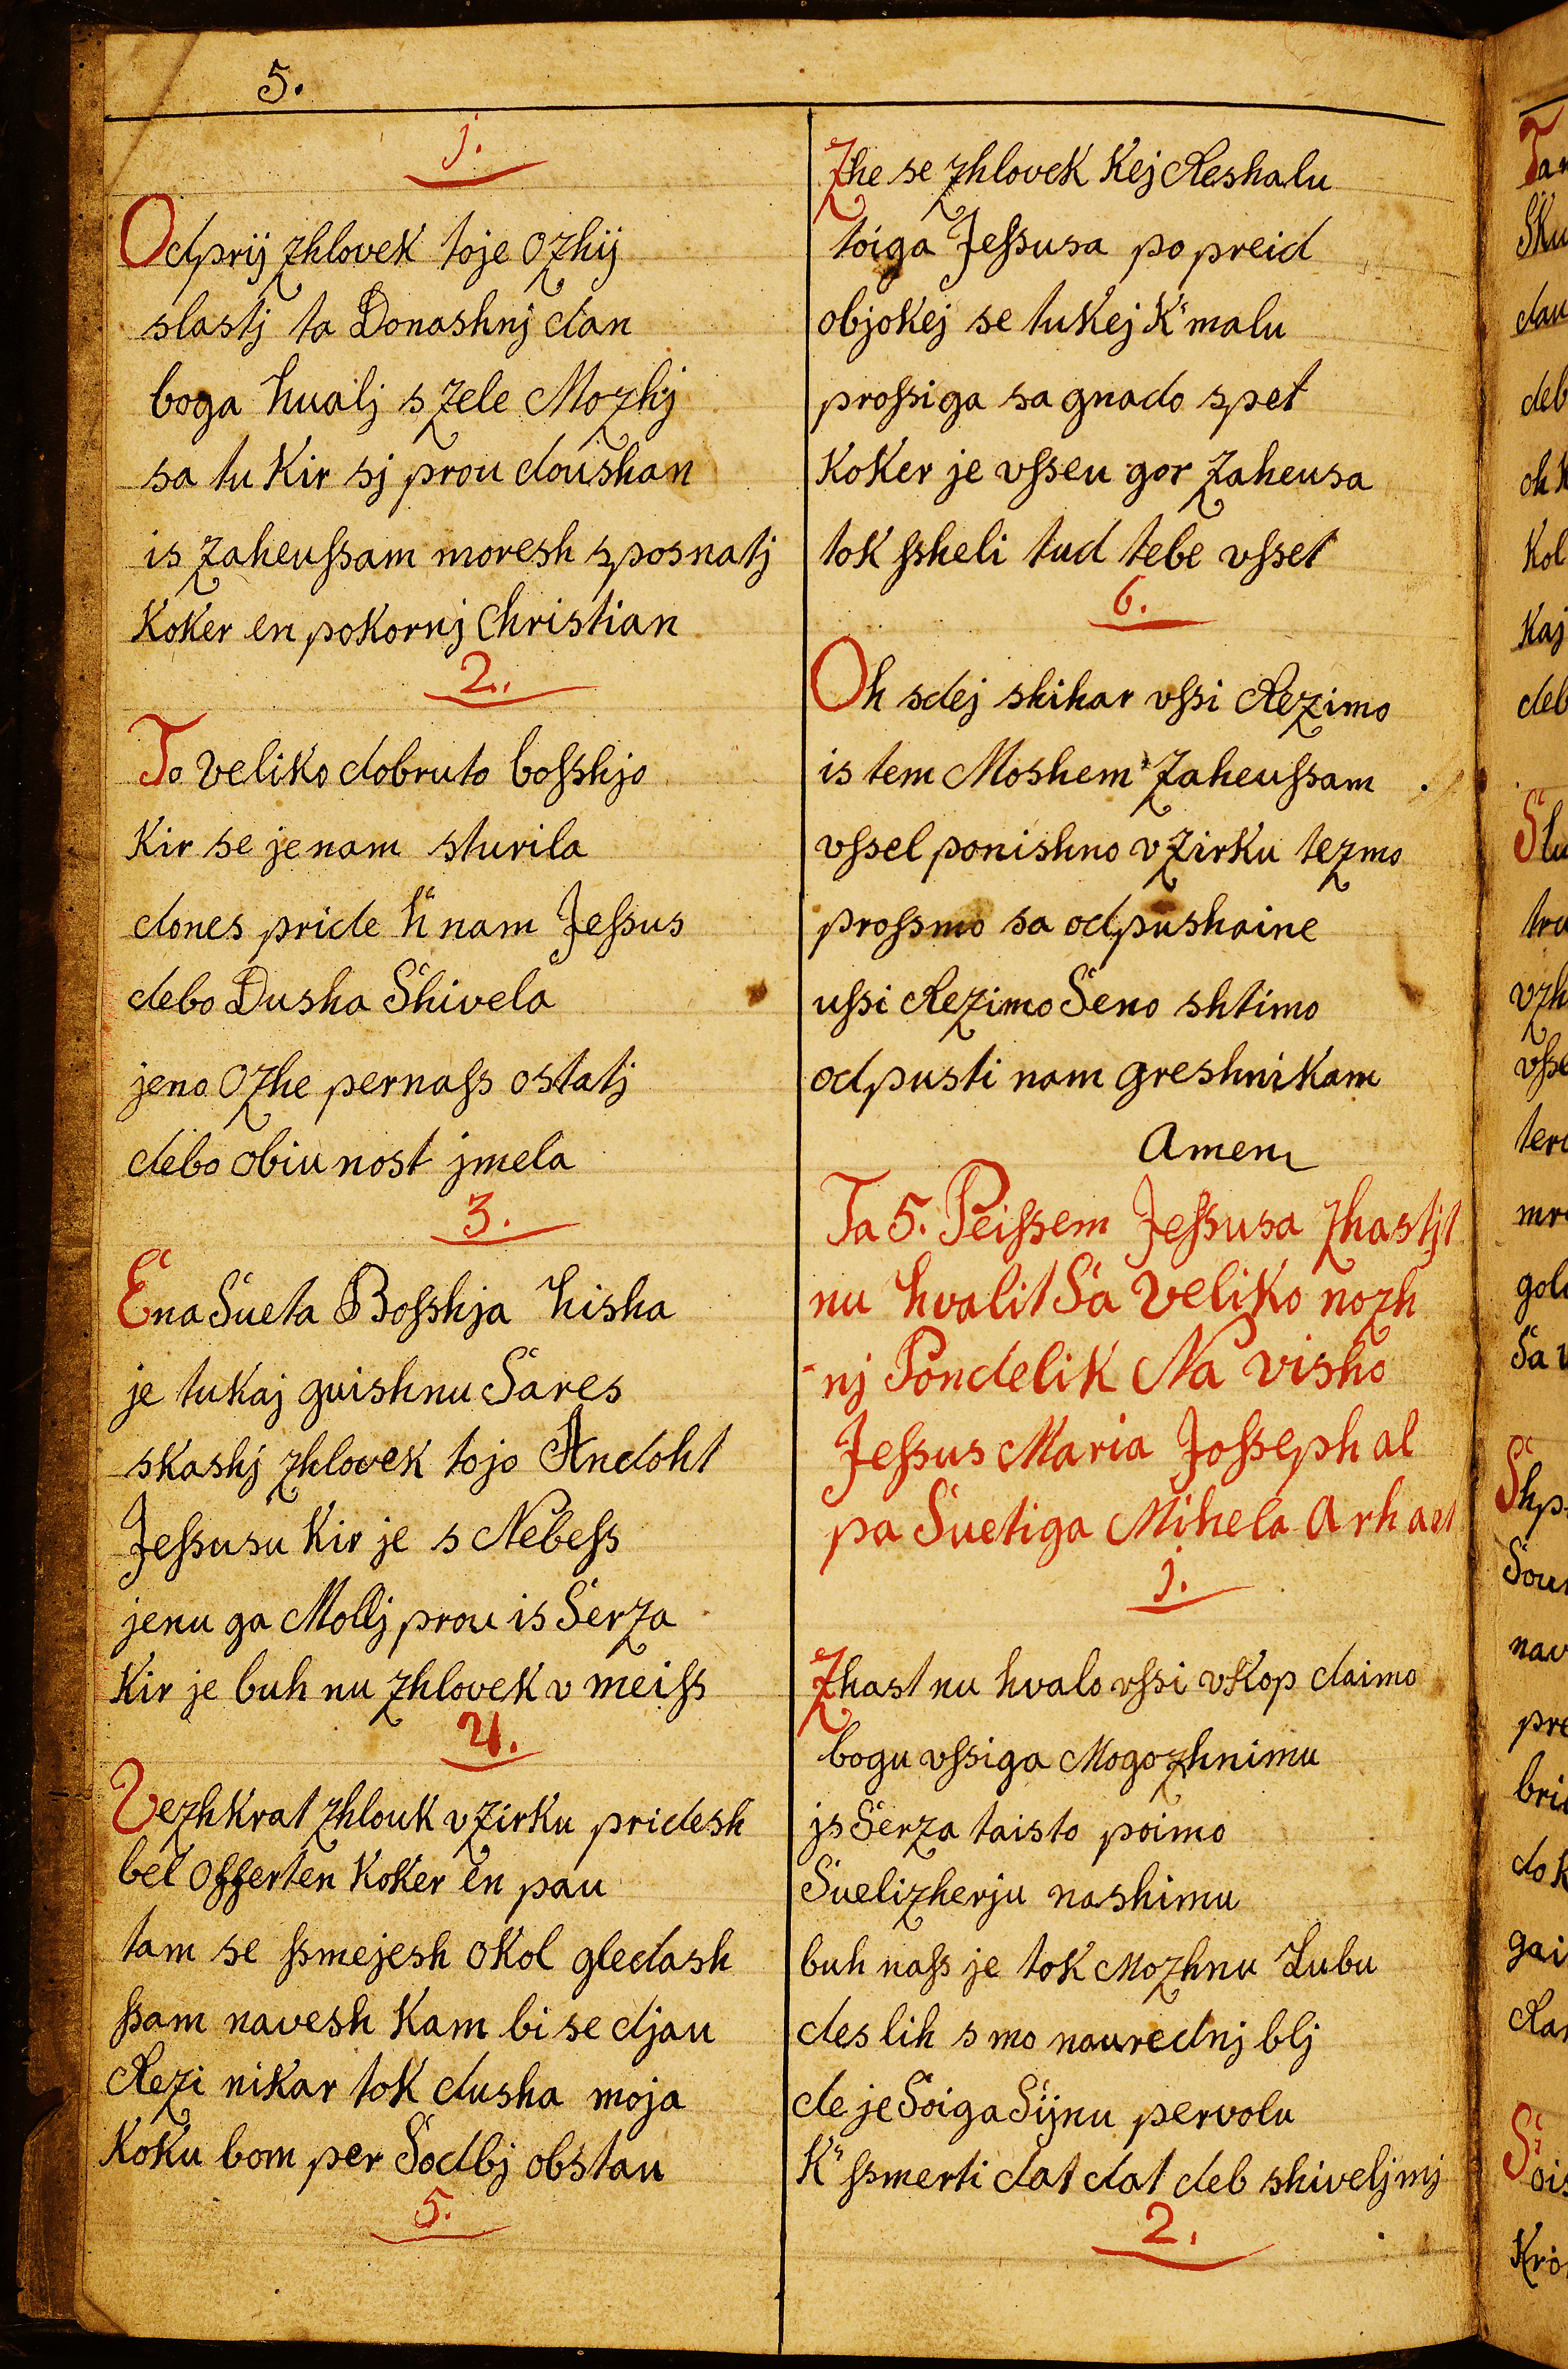 5.
1.
Odprij zhlovek toje ozhij
slastj ta Donashnj dan
boga hualj s zele Mozhj
sa tu Kir sj prou doushan
is zaheussam moresh sposnatj
Koker en pokornj Christian
2.
To veliko dobruto bosshjo
Kir se je nam sturila
dones pride h nam Jessus
debo Dusha Shivela
jeno Ozhe pernass ostatj
debo obiunost jmela
3.
Ena Sueta Bosshja hisha
je tukaj guishnu Sares
skashj zhlovek tojo Andoht
Jessusu Kir je s Nebess
jenu ga Mollj prou is Serza
Kir je buh nu zhlovek v meiss
4.
Vezhkrat zhlouk v zirku pridesh
bel offerten Koker en pau
tam se ssmejesh okol gledash
ssam navesh Kam bi se djau
Rezi nikar tok dusha moja
Koku bom per Sodbj obstau
5.
Zhe se zhlovek Kej Reshalu
toiga Jessusa po preid
objokej se tukej K malu
prossiga sa gnado spet
Koker je vsseu gor zaheusa
tok ssheli tud tebe vsset
6.
Oh sdej shihar vssi Rezimo
is tem Moshem Zaheussam
vssel ponishno v zirku tezmo
prossmo sa odpushaine
ussi Rezimo Seno shtimo
odpusti nam greshnikam
Amen
Ta 5. Peissem Jessusa zhastjt
nu hvalit Sa veliko nozh
-nj Pondelik Na visho
Jessus Maria Josseph al
pa Suetiga Mihela
1.
Zhast nu hvalo vssi vkop daimo
bogu vssiga Mogozhnimu
js Serza taisto poimo
Suelizherju nashimu
buh nass je tok Mozhnu Lubu
des lih smo naurednj blj
de je Soiga Sijnu pervolu
K ssmerti dat dat deb shiveljmj
2.